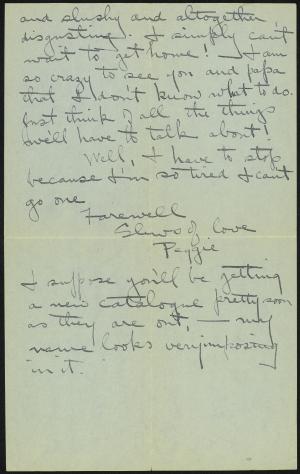 and slushy and altogether
disgusting. I simply can't
wait to get home! — I am
so crazy to see you and papa
that I don't know what to do.
Just think of all the things
we'll have to talk about!
Well, I have to stop
because I'm so tired I can't
go one
Farewell
Slews of love
Peggie
I suppose you'll be getting
a new catalogue pretty soon
as they are out, — my
name looks very imposing
in it.